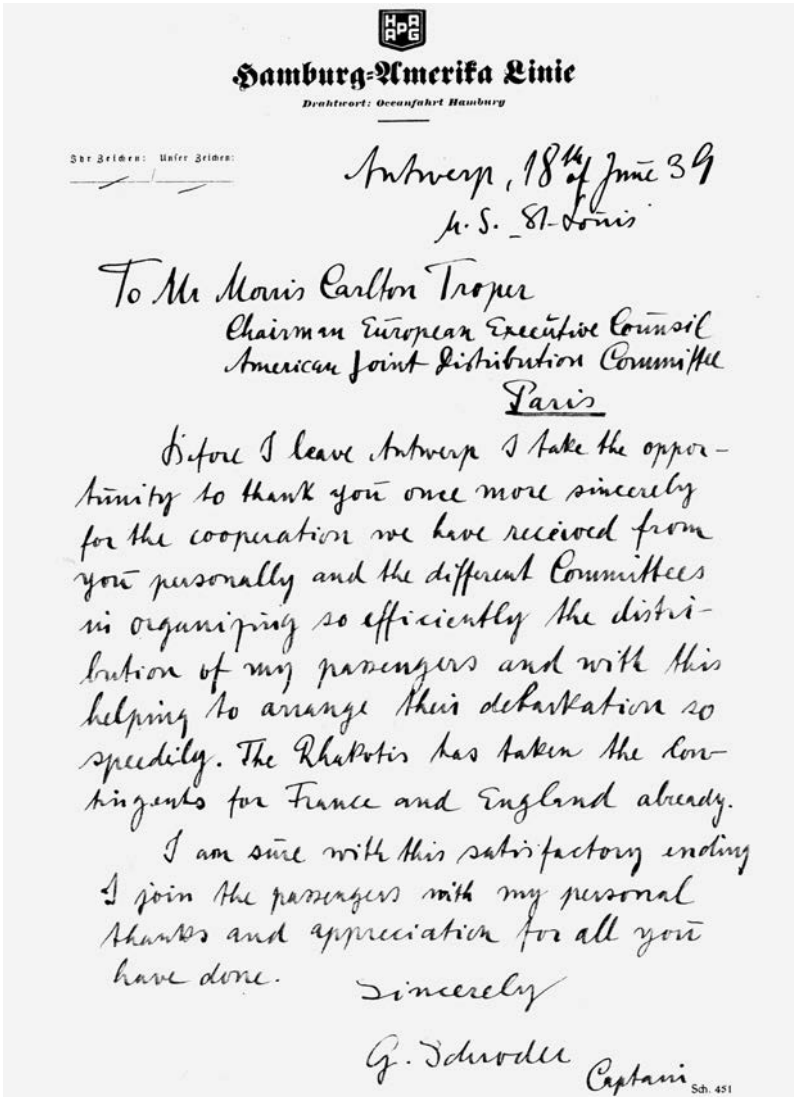 HAPAG
Hamburg-Amerika Linie
Drahtwort: Oceanfahrt Hamburg
Ihr Zeichen: Unser Zeichen:
Antwerp, 18th of June 39
M. S. St. Louis
To Mr Morris Carlton Troper
Chairman European Executive Counsil
American Joint Distribution Committee
Paris
Before I leave Antwerp I take the oppor-
tunity to thank you once more sincerely
for the cooperation we have received from
you personally and the different Committees
in organizing so efficiently the distri-
bution of my passengers and with this
helping to arrange their debarkation so
speedily. The Rhakotis has taken the Con-
tingents for France and England already.
I am sure with this satisfactory ending
I join the passengers with my personal
thanks and appreciation for all you
have done.
Sincerely
G. Schroder
Captain
Sch. 451